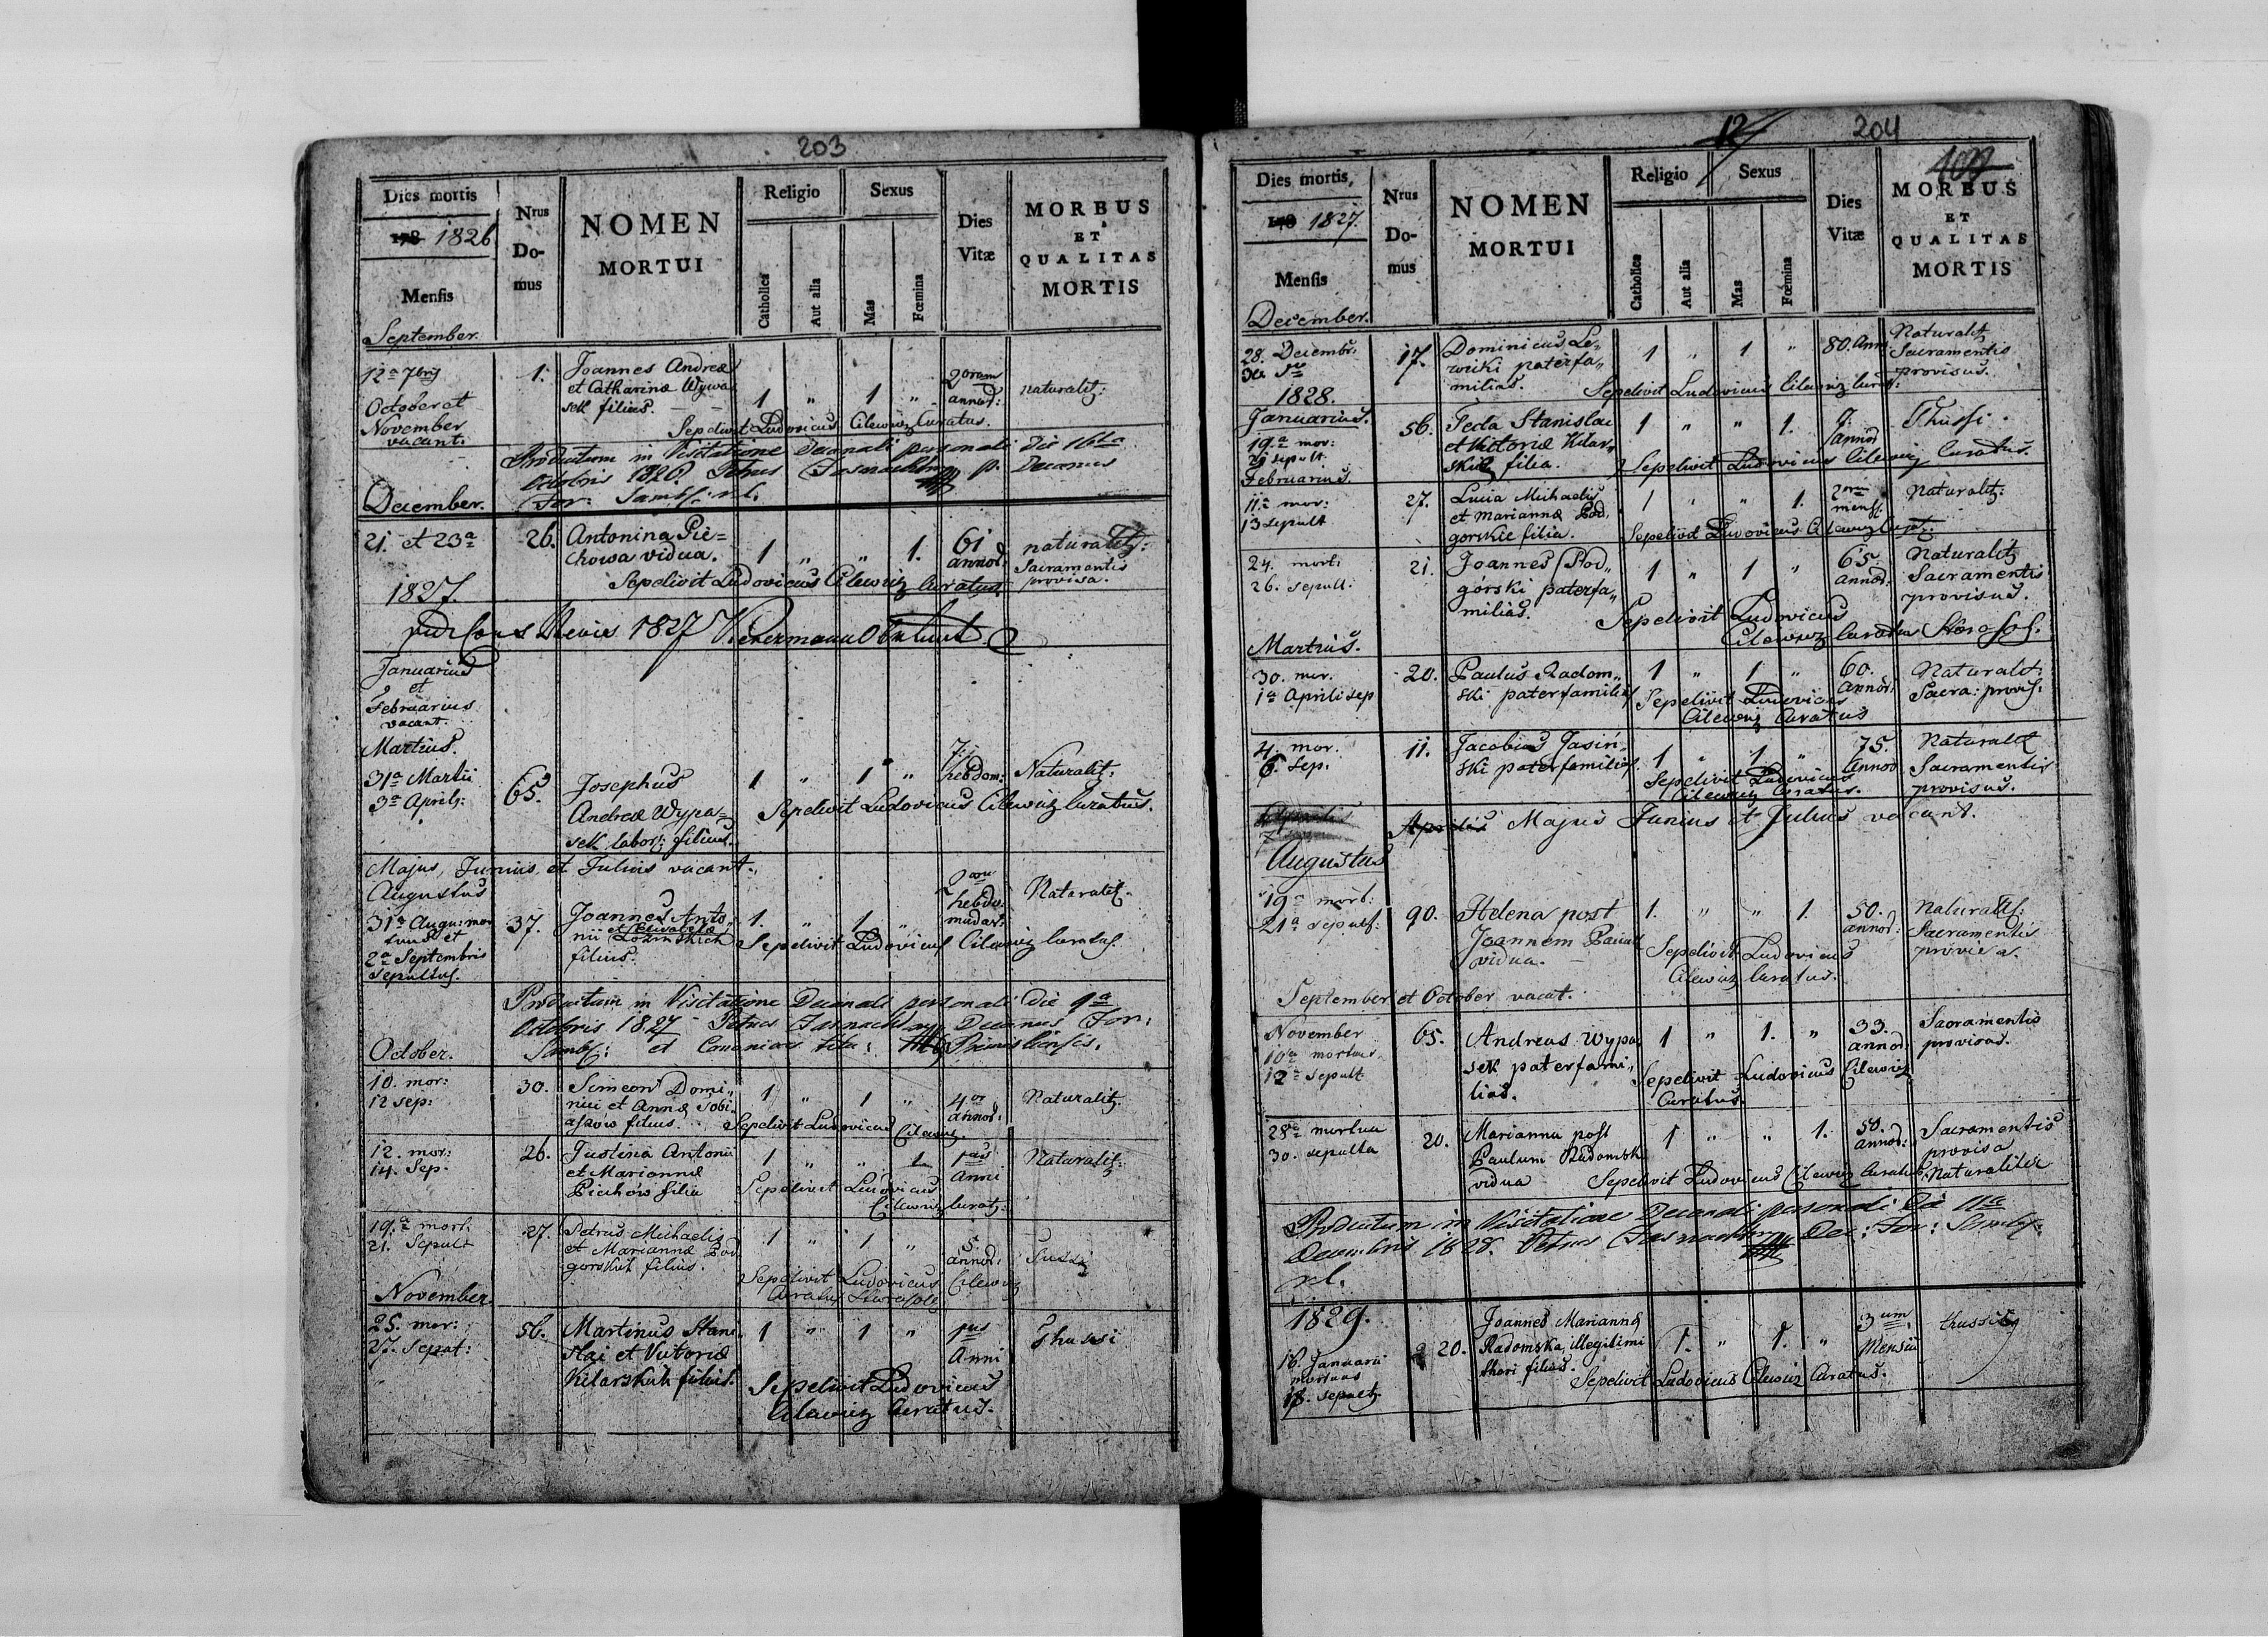 203
Dies mortis
178 1826
Mensis
September.
Nrus
Do-
mus
NOMEN
MORTUI
Religio
Catholica
Aut alia
Sexus
Mas
Fœmina
Dies
Vitæ
MORBUS
ET
QUALITAS
MORTIS
12a 7bris 1. Joannes Andreæ
et Catharinæ Wypa
sek filius. 1 " 1 " 2orum annor: naturalit:
Sepelivit Ludovicus Cilewicz Curatus.
October et
November
vacant.
Productum in Visitatione Decanali personali die 16ta
Octobris 1826. Petrus p. Decanus
For: Samb: rl.
December.
21. et 23a 26. Antonina Pie=
chowa vidua. 1 " " 1. 61 annor: naturalit:
Sacramentis
provisa.
Sepelivit Ludovicus Cilewicz Curatus
1827.
1827
Januarius
et
Februarius
vacant.
Martius.
31a Martii
3a Aprilis: 65. Josephus
Andreæ Wypa=
sek labor: filius. 1 " 1 " 7. hebdom: Naturalit:
Sepelivit Ludovicus Cilewicz Curatus.
Majus, Junius, et Julius vacant.
Augustus
31a Augu: mor
tuus et
2a Septembris
sepultus. 37. Joannes Anto-
nii et Elisabethæ
filius. 1. " 1 " 2arum hebdo-
madar: Naturalit.
Sepelivit Ludovicus Cilewicz Curatus.
Productum in Visitatione Decanali personali die 9a
Octobris 1827 Petrus Decanus For:
Samb: et Canonicus titu: Premisliensis.
October.
10. mor:
12 sep: 30. Simeon Domi-
nici et Annæ Sobi-
ajzów filius. 1 " 1 " 4or annor: Naturalit.
Sepelivit Ludovicus Cilewicz.
12. mor:
14. Sep. 26. Justina Antonii
et Mariannæ
Piechów filia 1 " " 1 1us Anni Naturalit:
Sepelivit Ludovicus
Cilewicz Curat:
19.a mort:
21. Sepult 27. Petrus Michaelis
et Mariannæ Pod
gorskich filius. 1 " 1 " 5. annor: Tussi
Sepelivit Ludovicus Cilewicz
Curatus
November.
25. mor:
27. Sepult: 56. Martinus Stani
slai et Victoriæ
Kilarskich filius. 1 " 1 " 1us Anni Thussi
Sepelivit Ludovicus
Cilewicz Curatus.
12
204
109
Dies mortis,
178 1827.
Mensis
December.
Nrus
Do-
mus
NOMEN
MORTUI
Religio
Catholica
Aut alia
Sexus
Mas
Fœmina
Dies
Vitæ
MORBUS
ET
QUALITAS
MORTIS
28. Decembr:
30. 17. Dominicus Le-
wicki paterfa-
milias. 1 " 1 " 80. Ann: Naturalit
Sacramentis
provisus.
Sepelivit Ludovicus Cilewicz Curat:
1828.
Januarius.
19.a mor:
21 sepult. 56. Tecla Stanislai
et Victoriæ Kilar-
skich filia. 1 " " 1. annor Thussi.
Sepelivit Ludovicus Cilewicz Curatus.
Februarius.
11.a mor:
13 sepult 27. Lucia Michaelis
et Mariannæ Pod-
gorskie filia. 1 " " 1. 2um mens. Naturalit:
Sepelivit Ludovicus Cilewicz Curat:
24. mort:
26. sepult: 21. Joannes Pod-
górski paterfa-
milias. 1 " 1 " 65. annor: Naturalit
Sacramentis
provisus.
Sepelivit Ludovicus
Cilewicz Curatus
Martius.
30. mor.
1a Aprili sep 20. Paulus Radom-
ski paterfamilias 1 " 1 " 60. annor: Naturalit:
Sacra: provis:
Sepelivit Ludovicus
Cilewicz Curatus
4. mor.
6. Sep. 11. Jacobus Jasiń-
ski paterfamilias. 1 " 1 " 75. Annor Naturalit
Sacramentis
provisus.
Sepelivit Ludovicus
Cilewicz Curatus.
Aprilis Majus Junius et Julius vacant.
Augustus
19a mort:
21a sepult: 90. Helena post
Joannem
vidua. 1. " " 1. 50. annor: Naturalit:
Sacramentis
provisa.
Sepelivit Ludovicus
Cilewicz Curatus.
September et October vacat.
November
10a mortuus
12a sepult 65. Andreas Wypa
sek paterfami-
lias. 1 " 1. " 33. annor: Sacramentis
provisus.
Sepelivit Ludovicus Cilewicz
Curatus.
28a mortua
30. sepulta 20. Marianna post
Paulum Radomski
vidua 1 " " 1. 50. annor: Sacramentis
provisa
Naturaliter
Sepelivit Ludovicus Cilewicz Curatus.
Productum in Visitatione Decanali personali die 11a
Decembris 1828. Petrus Dec: For: Samb:
rl.
1829.
16. Januarii
mortuus
18. sepult 20. Joannes Mariannæ
Radomska, illegitimi
thori filius. 1. " 1. " 3um Mensiu thussis
Sepelivit Ludovicus Cilewicz Curatus.